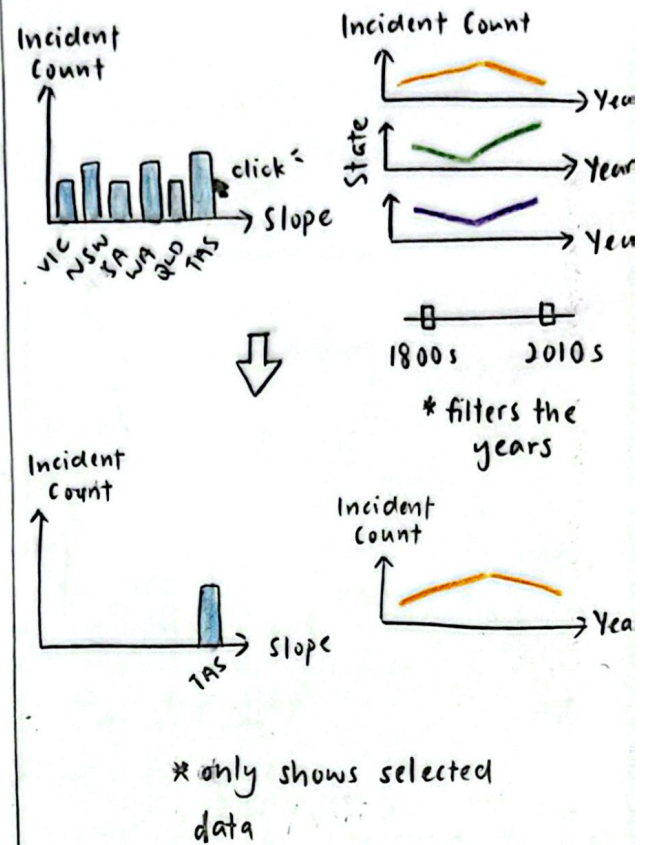 Incident
Count
click
Slope
VIC
NSW
SA
WA
QLD
TAS
Incident Count
State
Yea
Year
Yea
1800s
2010s
* filters the
years
Incident
Count
Slope
TAS
Incident
Count
Yea
* only shows selected
data